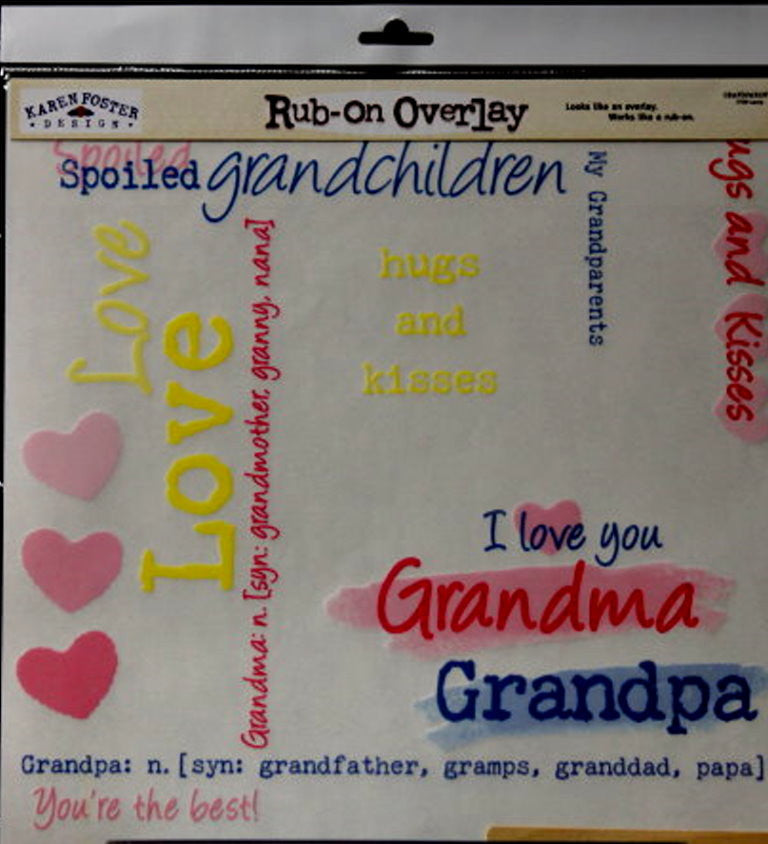 KAREN FOSTER
DESIGN
Rub-on Overlay
Looks like an overlay.
Works like a rub-on.
Spoiled
Spoiled grandchildren
My Grandparents
ugs and Kisses
Love
Love
Grandma: n. [syn: grandmother, granny, nana]
hugs
and
kisses
I love you
Grandma
Grandpa
Grandpa: n. [syn: grandfather, gramps, granddad, papa]
You're the best!